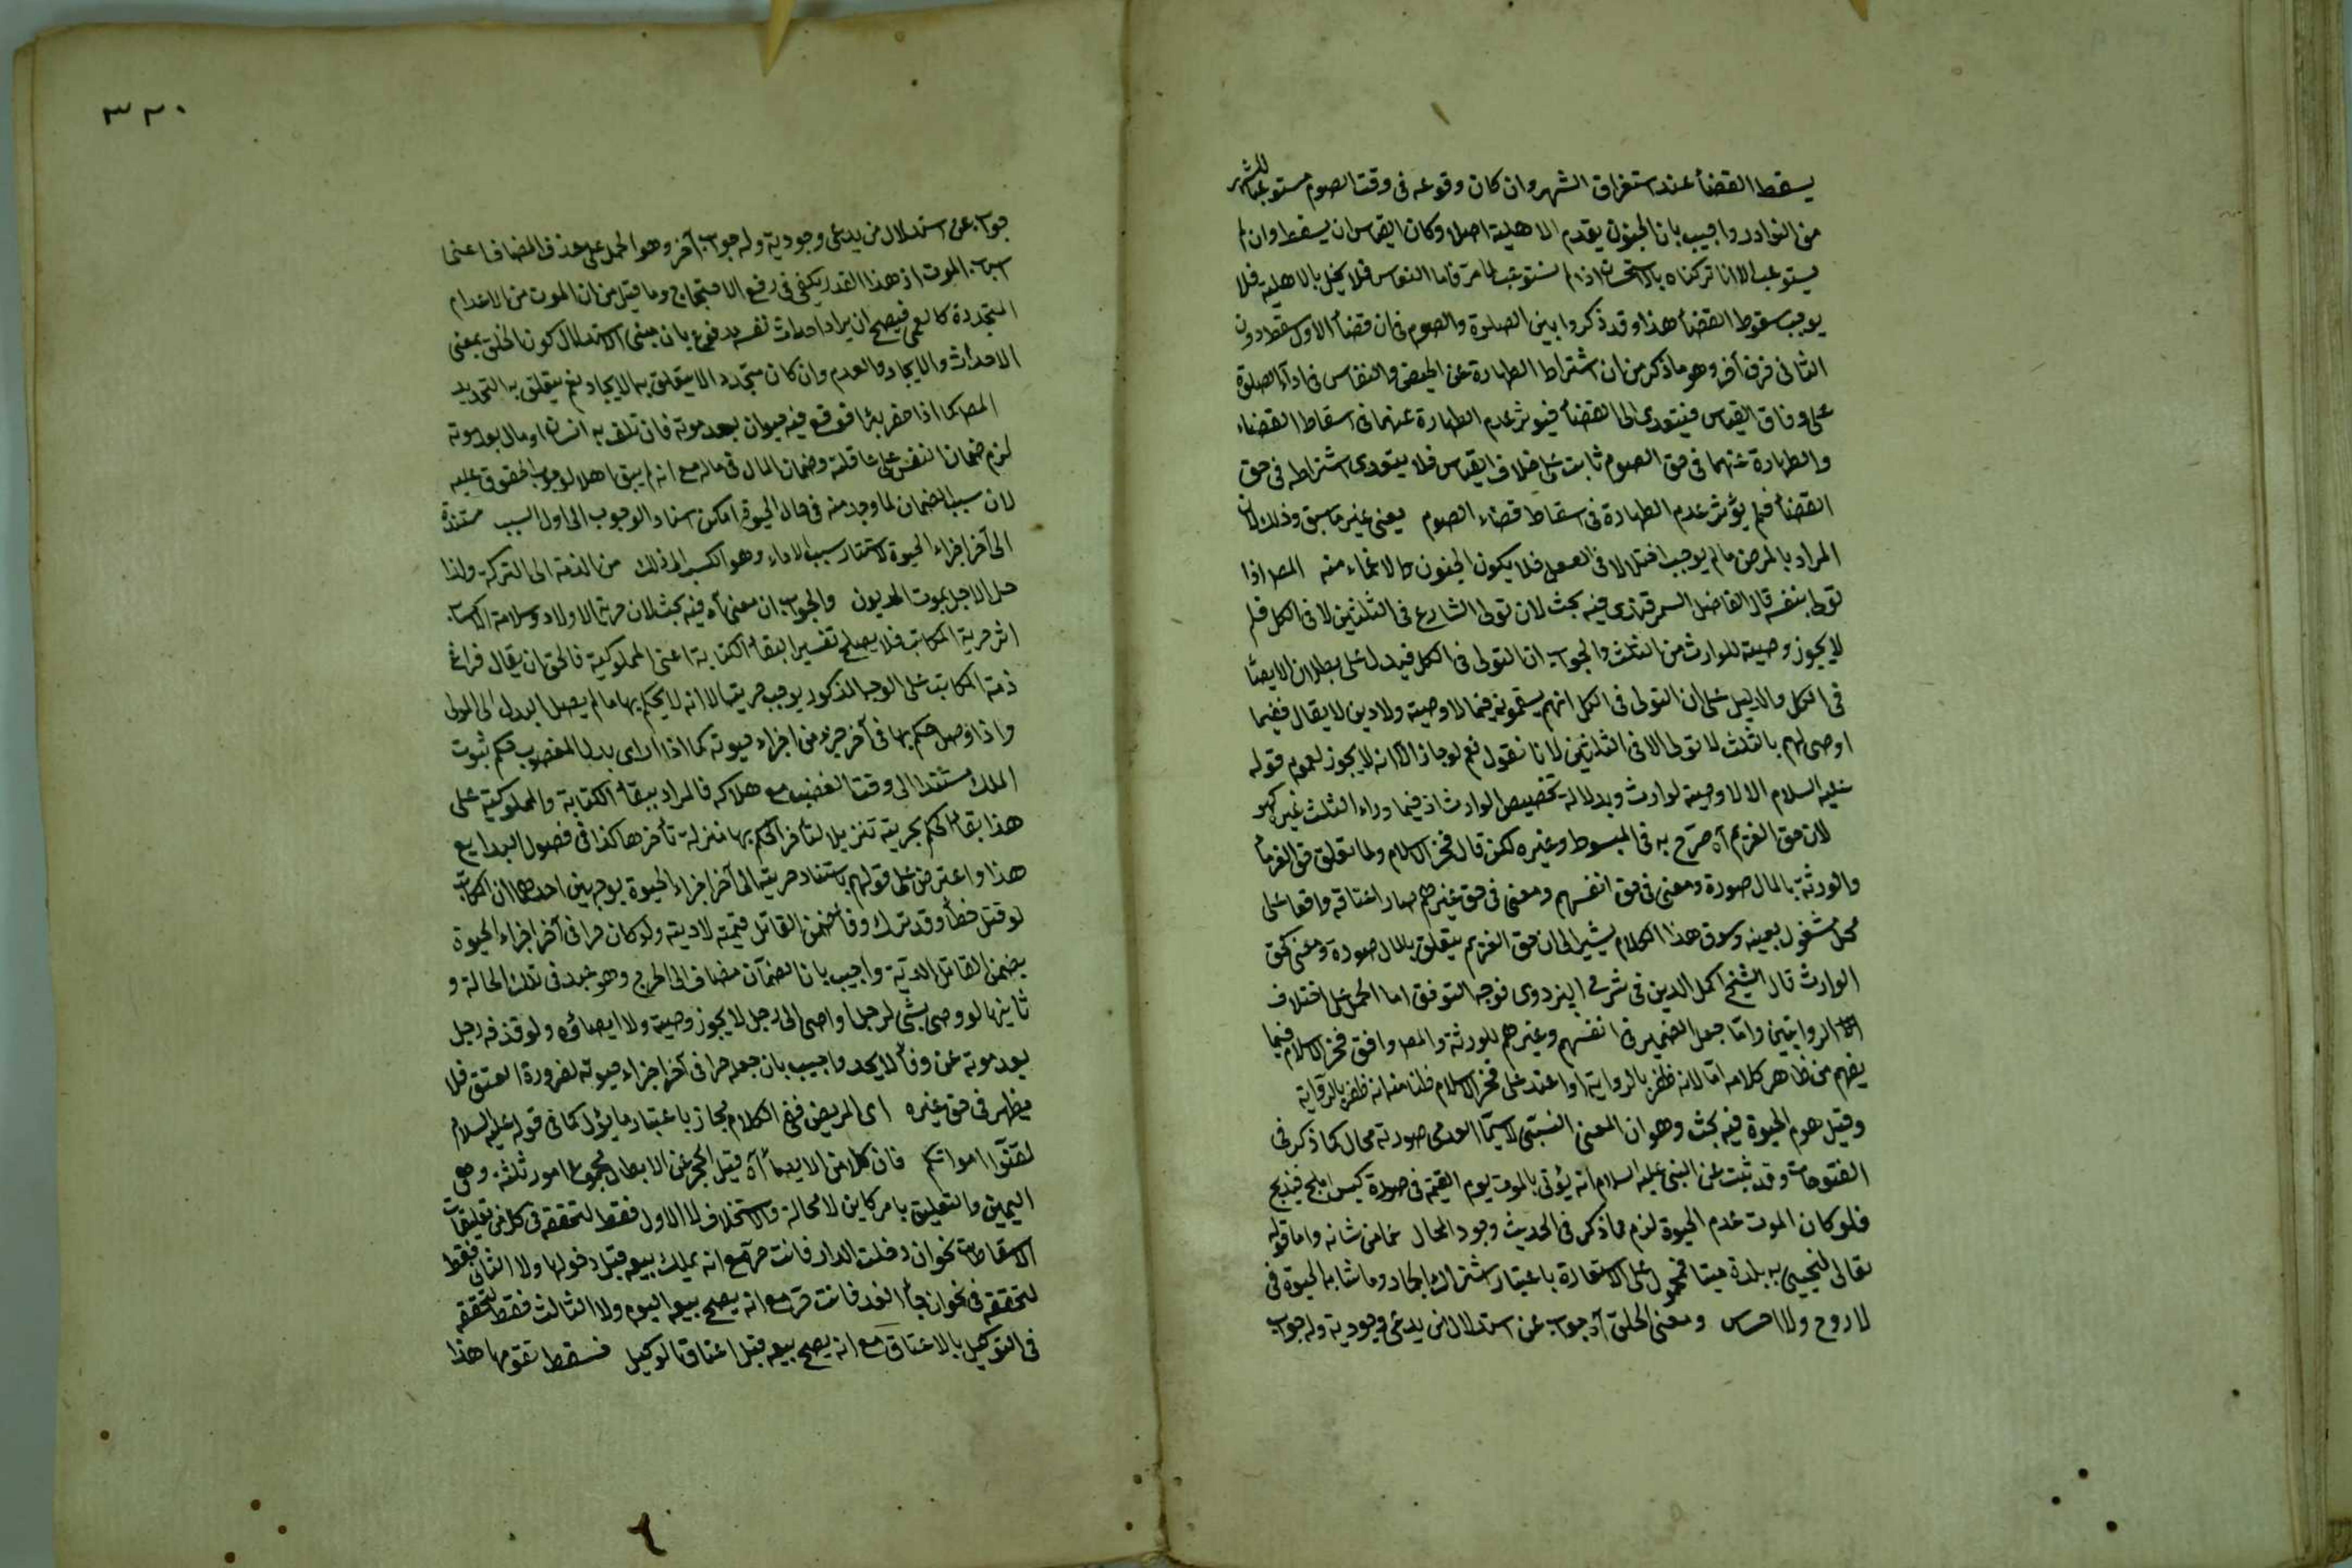 يسقط القضاء عند استغراق الشهر وان كان وقوعه فى وقت الصوم مستوعبا للشهر
من النوادر واجيب بان الجنون يعدم الاهلية اصلا وكان القياس ان يسقط وان لم
يستوعب الا انا تركناه بالاستحسان اذا لم يستوعب لما مر فاما النفاس فلا يخل بالاهلية فلا
يوجب سقوط القضاء هذا وقد ذكروا بين الصلوة والصوم فى ان قضاء الاول سقط دون
الثانى فرق آخر وهو ما ذكر من ان اشتراط الطهارة عن الحيض والنفاس فى اداء الصلوة
على وفاق القياس فيتعدى الى القضاء فيؤثر عدم الطهارة عنهما فى اسقاط القضاء
والطهارة عنهما فى حق الصوم ثابت على خلاف القياس فلا يتعدى اشتراطه فى حق
القضاء فلم يؤثر عدم الطهارة فى اسقاط قضاء الصوم يعنى غير ما سبق وذلك لان
المراد بالمرض ما لم يوجب اختلالا فى العقل فلا يكون الجنون والاغماء منه المص اذا
تولى بنفسه قال الفاضل السمرقندى فيه بحث لان تولى الشارع فى الثلثين لا فى الكل فلم
لا يجوز وصية للوارث من الثلث والجواب ان التولى فى الكل فيدل على بطلان الايصاء
فى الكل والدليل على ان التولى فى الكل انهم يستحقونه فيما لا وصية ولا دين لا يقال ففيما
اوصى لهم بالثلث لا تولى الا فى الثلثين لانا نقول نعم لو جاز الا انه لا يجوز لعموم قوله
عليه السلام الا لا وصية لوارث وبدلالة تخصيص الوارث اذ فيما وراء الثلث غيره كهو
لان حق الغريم آه صرح به فى المبسوط وغيره لكن قال فخر الاسلام ولما تعلق حق الغرماء
والورثة بالمال صورة ومعنى فى حق انفسهم ومعنى فى حق غيرهم صار اعتاقه واقعا على
محل مشغول بعينه وسوق هذا الكلام يشير الى ان حق الغريم يتعلق بالمال صورة ومعنى كحق
الوارث قال الشيخ اكمل الدين فى شرح البزدوى فوجه التوفيق اما الحمل على اختلاف
الروايتين واما جعل الضمير فى انفسهم وغيرهم للورثة والمص وافق فخر الاسلام فيما
يفهم من ظاهر كلامه اما لانه ظفر بالرواية او اعتمد على فخر الاسلام ظنا منه انه ظفر بالرواية
وقيل هدم الحيوة فيه بحث وهو ان المعنى النسبى لا سيما العدمى صورته محال كما ذكر فى
الفتوحات وقد ثبت عن النبى عليه السلام انه يؤتى بالموت يوم القيمة فى صورة كبش املح فيذبح
فلو كان الموت عدم الحيوة لزم مما ذكر فى الحديث وجود المحال عما من شانه واما قوله
تعالى لنحيى به بلدة ميتا فمحمول على الاستعارة باعتبار اشتراك الجماد وما شابه الحيوة فى
لا روح ولا احساس ومعنى الخلق آه جواب عن استدلال من يدعى وجودية وله جواب
٣٢٠
جواب عن استدلال من يدعى وجودية وله جواب آخر وهو الحمل على حذف المضاف اعنى
اسباب الموت اذ هذا القدر يكفى فى رفع الاحتجاج وما قيل من ان الموت من الاعدام
المتجددة كالعمى فيصح ان يراد احداث نفسه مدفوع بان مبنى الاستدلال كون الخلق بمعنى
الاحداث والايجاد والعدم وان كان متجددا لا يتعلق به الايجاد نعم يتعلق به التجديد
المص كما اذا حفر بئرا فوقع فيه حيوان بعد موته فان تلف به انسان او مال بعد موته
لزم ضمان النفس على عاقلته وضمان المال فى ماله مع انه لم يبق اهلا لوجوب الحقوق عليه
لان سبب الضمان لما وجد منه فى حال الحيوة امكن اسناد الوجوب الى اول السبب مستندة
الى آخر اجزاء الحيوة لاستناد سبب الاداء وهو الكسب الى ذلك من الذمة الى التركة ولذا
حل الاجل بموت المديون والجواب ان معنى آه فيه بحث لان حرية الاولاد وسلامة الاكساب
اثر حرية المكاتب فلا يصلح تفسيرا لبقاء الكتابة اعنى المملوكية فالحق ان يقال فراغ
ذمة المكاتب على الوجه المذكور يوجب حريته الا انه لا يحكم بها ما لم يصل البدل الى المولى
واذا وصل حكم بها فى آخر جزء من اجزاء حيوته كما اذا ادى بدل المغصوب حكم بثبوت
الملك مستندا الى وقت الغصب مع هلاكه فالمراد ببقاء الكتابة والمملوكية على
هذا بقاء الحكم بحريته تنزيلا لتأخر الحكم بها منزلة تأخرها كذا فى فصول البدايع
هذا واعترض على قولهم باستناد حريته الى آخر اجزاء الحيوة بوجهين احدهما ان المكاتب
لو قتل خطأ وقد ترك وفاء ضمن القاتل قيمته لا ديته ولو كان حرا فى آخر اجزاء الحيوة
يضمن القاتل الدية واجيب بان الضمان مضاف الى الجرح وهو عبد فى تلك الحالة و
ثانيهما لو وصى بشى لرجل او اوصى الى رجل لا يجوز وصيته ولا ايصاؤه ولو قذفه رجل
بعد موته عن وفاء لا يحد واجيب بان جعله حرا فى آخر اجزاء حيوته لضرورة العتق فلا
يظهر فى حق غيره اى المريض ففى الكلام مجاز باعتبار ما يؤل كما فى قوله عليه السلام
لقنوا امواتكم فان كلا من الايصاء آه قيل الحجر عن الابطال مجموع امور ثلثة وهى
اليمين والتعليق بامر كاين لا محالة والاستخلاف لا الاول فقط لتحققه فى كل من تعليقات
الاسقاطات نحو ان دخلت الدار فانت حر مع انه يملك بيعه قبل دخولها ولا الثانى فقط
لتحققه فى نحو ان جاء الغد فانت حر مع انه يصح بيعه اليوم ولا الثالث فقط لتحققه
فى التوكيل بالاعتاق مع انه يصح بيعه قبل اعتاق الوكيل فسقط تقومها هذا